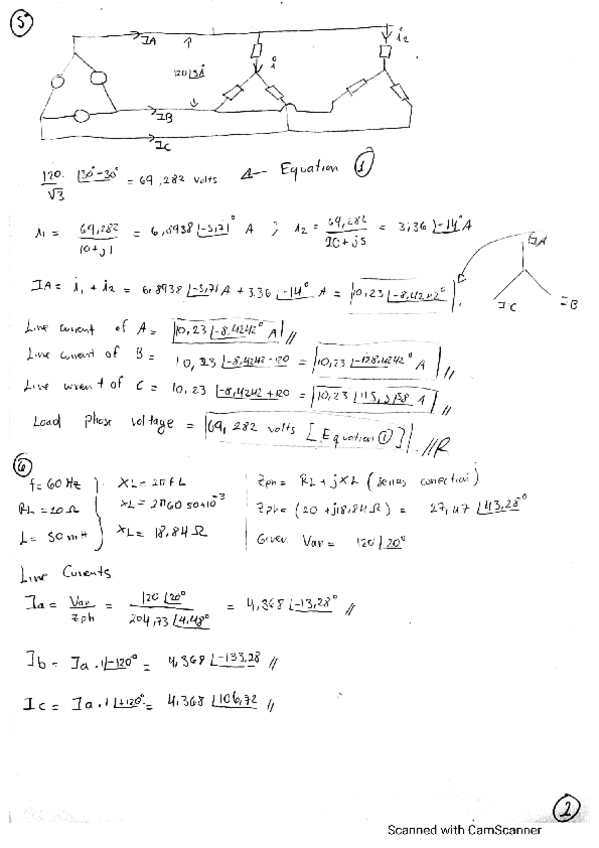 5
IA
i
i2
120∠30°
IB
IC
120/√3 ∠30°-30° = 69,282 volts ← Equation 1
i1 = 69,282/10+j1 = 6,8938∠-5,71° A ; i2 = 69,282/20+j5 = 3,36∠-14° A
IA = i1 + i2 = 6,8938∠-5,71 A + 3.36∠-14° A = 10,23∠-8,4242°
IA
IC
IB
Line current of A = 10,23∠-8,4242° A //
Line current of B = 10,23∠-8,4242-120 = 10,23∠-128,4242° A //
Line current of C = 10,23∠-8,4242+120 = 10,23∠115,5758 A //
Load phase voltage = 69,282 volts [Equation 1] .//R
6
f = 60 Hz XL = 2πfL Zph = RL + jXL (series conection)
RL = 20Ω XL = 2π60 50*10^-3 Zph = (20 + j18,84Ω) = 27,47∠43,28°
L = 50mH XL = 18,84Ω Given Van = 120∠20°
Line Curents
Ia = Van/Zph = 120∠20°/204,73∠4,48° = 4,368∠-13,28° //
Ib = Ia . 1∠-120° = 4,368∠-133,28 //
Ic = Ia . 1∠+120° = 4,368∠106,72 //
2
Scanned with CamScanner